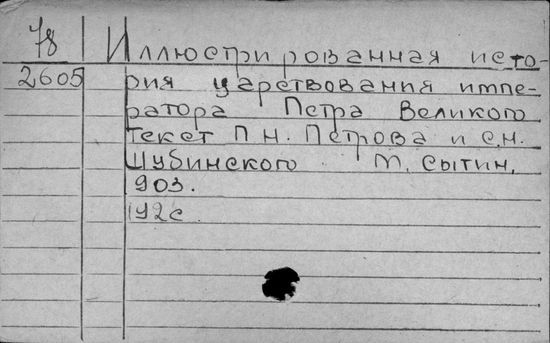 78 Иллюстрированная исто-
2605 рия царствования импе-
ратора Петра Великого
Текст П.Н. Петрова и С.Н.
Шубинского М. Сытин,
903.
192с.